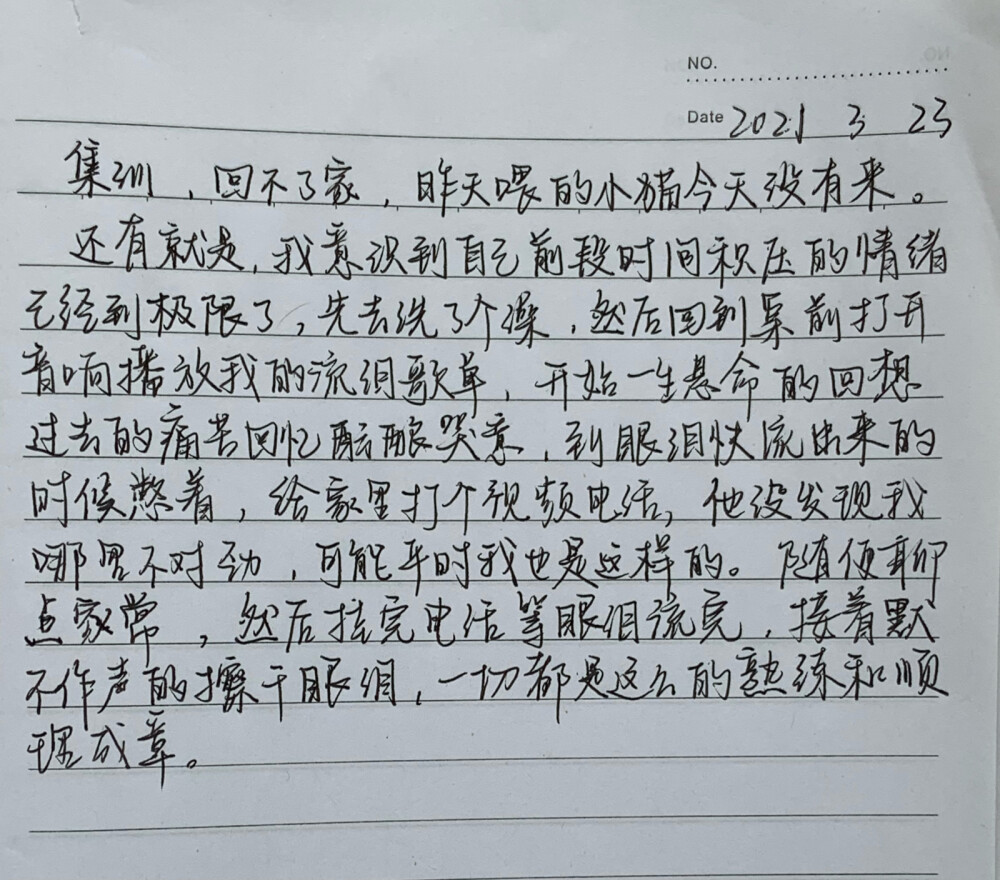 NO.
Date 2021 3 23
集训，回不了家，昨天喂的小猫今天没有来。
还有就是，我意识到自己前段时间积压的情绪
已经到极限了，先去洗了个澡，然后回到桌前打开
音响播放我的流泪歌单，开始一生悬命的回想
过去的痛苦回忆酝酿哭意，到眼泪快流出来的
时候憋着，给家里打个视频电话，他没发现我
哪里不对劲，可能平时我也是这样的。随便聊
点家常，然后挂完电话等眼泪流完，接着默
不作声的擦干眼泪，一切都是这么的熟练和顺
理成章。